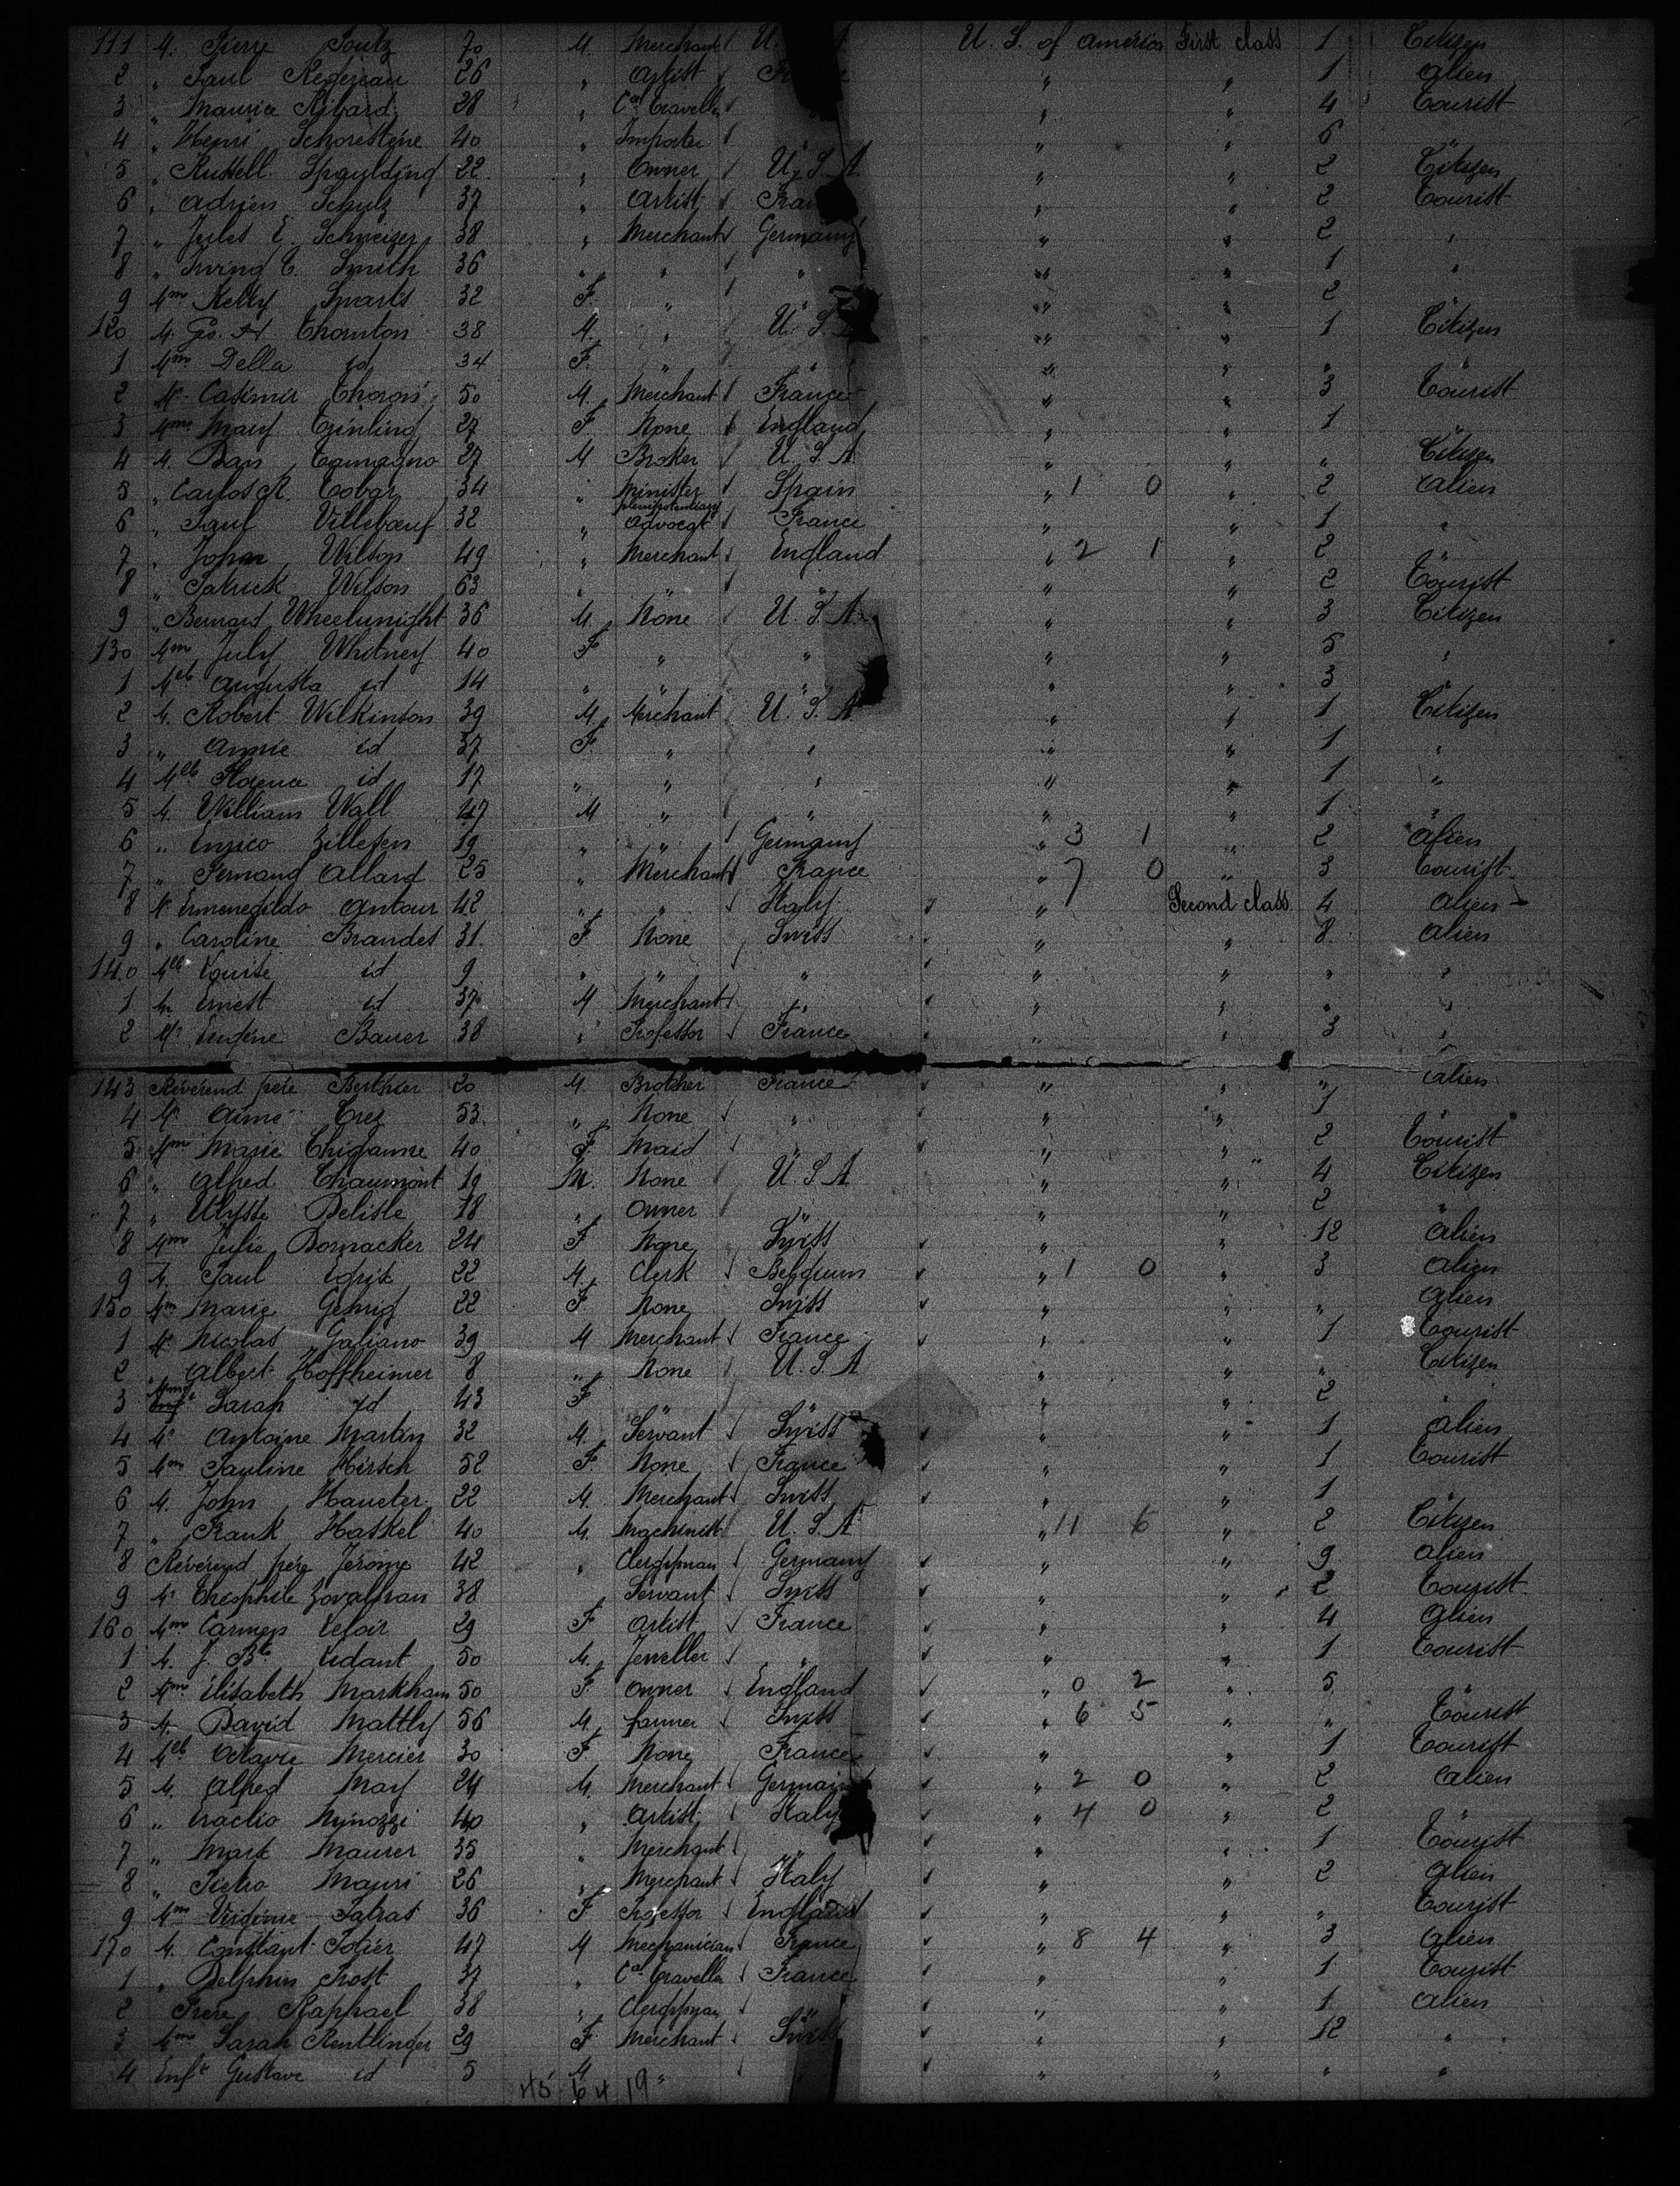 111 M. Pierre Soutz 70 M. Merchant U. A U. S. of america First class 1 Citizen
2 „ Paul 26 „ Artist „ „ 1 alien
3 „ Maurice Ribard 28 „ Cal Traveller „ „ 4 Tourist
4 „ Henri Schorestène 40 „ Importer „ „ 6 „
5 „ Russell Spaulding 22 „ Owner U. S. A. „ „ 2 Citizen
6 „ Adrien Schulz 37 „ Artist Fran „ „ 2 Tourist
7 „ Jules E. Schweizer 38 „ Merchant Germany „ „ 2 „
8 „ Irving T. Smith 36 „ „ „ „ „ 1 „
9 Mme Kelly Swarts 32 F. „ „ „ 2
120 M. Geo. Thornton 38 M. „ U. S. „ „ 1 Citizen
1 Mme Della id 34 F. „ „ „ „ „ „
2 Mr Casimir 50 M. Merchant France „ „ 3 Tourist
3 Mme Mary 27 F None England „ „ 1 „
4 M. Tamagno 27 M Broker U. S. A „ „ „ Citizen
5 „ Carlos R. Tobar 34 „ Minister plenipotentiary Spain „ 1 0 „ 2 alien
6 „ Paul Villebœuf 32 „ Advocat France „ „ 1 „
7 „ John Wilson 49 „ Merchant England „ 2 1 „ 2 „
8 „ Patrick Wilson 63 „ „ „ „ 2 Tourist
9 „ Bernard Wheelwright 36 M. None U. S. A. „ „ 3 Citizen
130 Mme July Whitney 40 F „ „ „ „ 5 „
1 Mlle Augusta id 14 „ „ „ „ „ 3 „
2 M. Robert Wilkinson 39 M. Merchant U. S. A „ „ 1 Citizen
3 „ Annie id 37 F. „ „ „ „ 1 „
4 Mlle id 17 „ „ „ „ „ 1 „
5 M. William Wall 47 M „ „ „ „ 1 „
6 „ Enrico Zillesen 19 „ „ Germany „ 3 1 „ 2 alien
7 „ Fernand Allard 25 „ Merchant France „ 7 0 „ 3 Tourist
8 Mr Ermenegildo Antour 42 „ „ Italy „ Second class 4 alien
9 „ Caroline Brandes 31. F None Swiss „ „ 8 alien
140 Mlle Louise id 9 „ „ „ „ „ „ „
1 Mr Ernest id 37 M Merchant „ „ „ „ „
2 Mr Eugène Bauer 38 „ Professor France „ „ 3 „
143 Révérend père Berthier 20 M. Brother France „ „ „ alien
4 Mr Aimé 53 „ None „ „ „ 1
5 Mme Marie 40 F. Maid „ „ „ 2 Tourist
6 „ Alfred Chaumont 19 M. None U. S. A „ „ 4 Citizen
7 „ Ulysse Delisle 18 „ Owner „ „ „ 2 „
8 Mme Julie Dornacker 24 F None Swiss „ „ 12 alien
9 M. Paul 22 M. Clerk Belgium „ 1 0 „ 3 alien
150 Mme Marie Gehrig 22 F None Swiss „ „ „ alien
1 Mr Nicolas Galiano 39 M Merchant France „ „ 1 Tourist
2 „ Albert Hoffheimer 8 „ None U. S. A „ „ „ Citizen
3 Mme Sarah id 43 F „ „ „ „ 2 „
4 Mr Antoine Martin 32 M. Servant Swiss „ „ 1 alien
5 Mme Pauline Hirsch 52 F. None France „ „ 1 Tourist
6 M. John Haueter 22 M. Merchant Swiss „ „ 1 „
7 „ Frank Haskel 40 M. Machinist U. S. A „ 11 6 „ 2 Citizen
8 Révérend père Jérome 42 „ Clergyman Germany „ „ 9 alien
9 Mr Théophile 38 Servant Swiss „ „ 2 Tourist
160 Mme Carmen 29 F Artist France „ „ 4 alien
1 M. J. Bte 50 M. Jeweller „ „ „ 1 Tourist
2 Mme Elisabeth Markham 50 F. Owner England „ 0 2 „ 5 „
3 M. David Mattly 56 M. farmer Swiss „ 6 5 „ „ Tourist
4 Mlle Octavie Mercier 30 F. None France „ „ 1 Tourist
5 M. Alfred May 24 M. Merchant Germany „ 2 0 „ 2 alien
6 „ Minozzi 40 „ Artist Italy „ 4 0 „ 2 „
7 „ Mark Maurer 35 „ Merchant „ „ „ 1 Tourist
8 „ Pietro Mauri 26 „ Merchant Italy „ „ 2 alien
9 Mme Virginie 36 F Professor England „ „ „ Tourist
170 M. Constant 47 M Mechanician France „ 8 4 „ 3 alien
1 „ Delphin Prost 37 „ Cal Traveller France „ „ 1 Tourist
2 Frère Raphael 38 „ Clergyman „ „ „ 1 alien
3 Mme Sarah Reutlinger 29 F Merchant Swiss „ „ 12 „
4 Enft Gustave id 5 M „ „ „ „ „
45 64 19